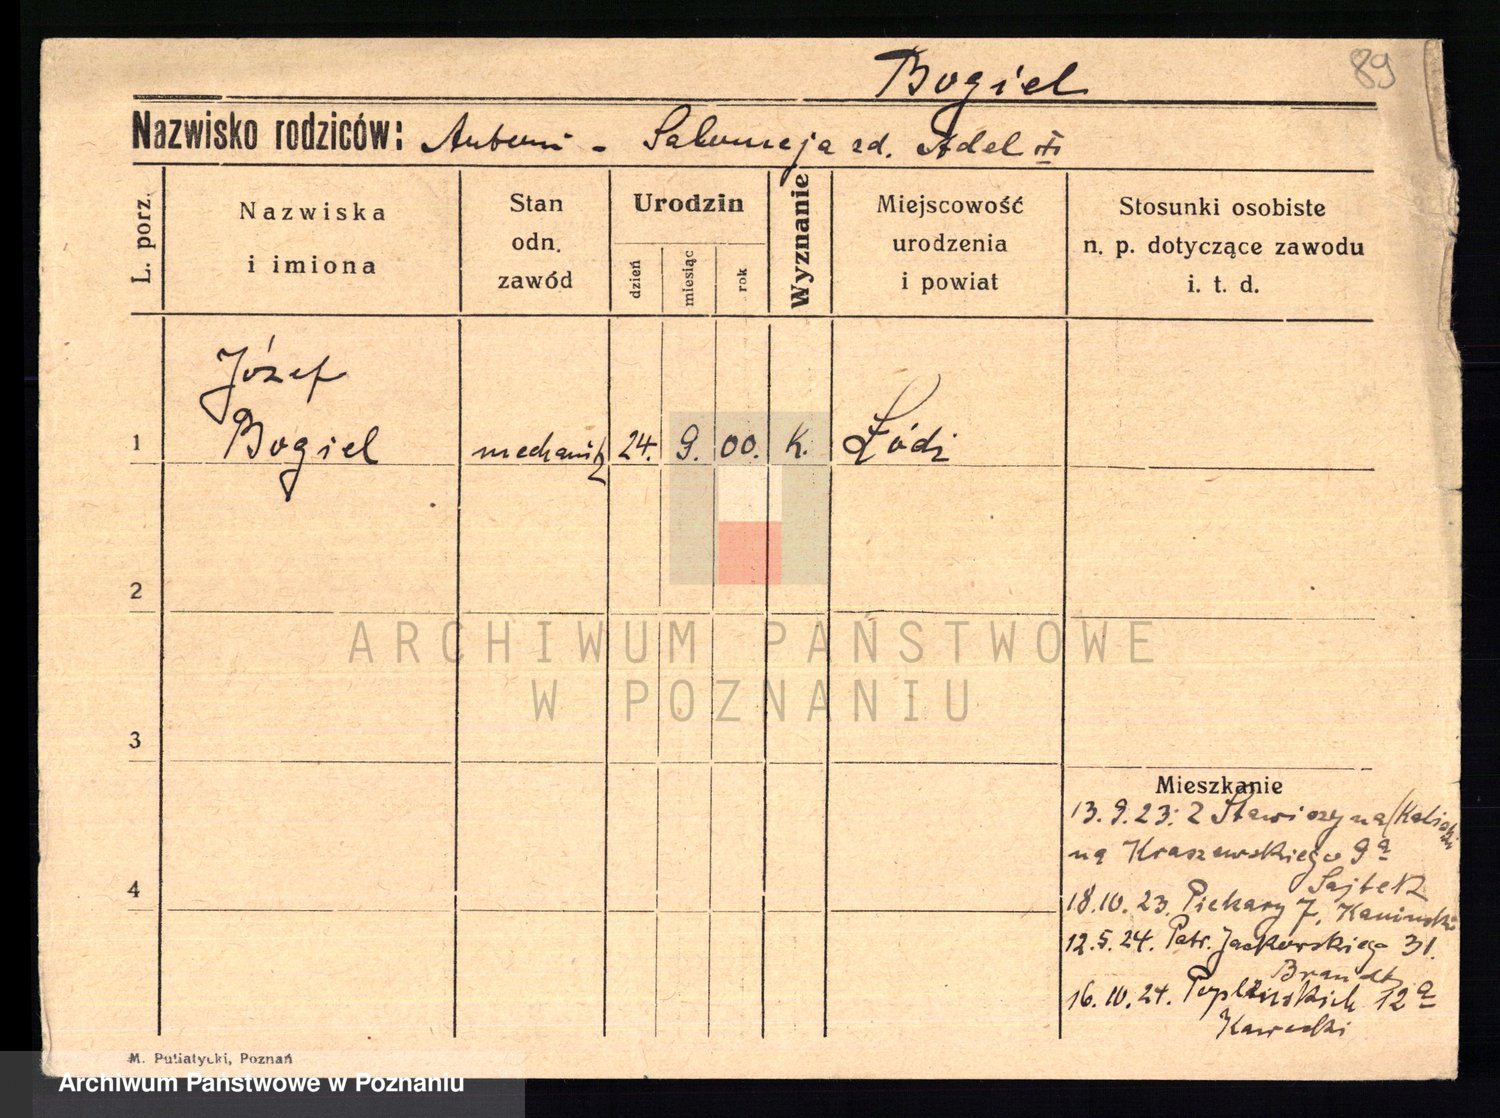 Bogiel
89
Nazwisko rodziców: Antoni - Salomeja zd. Adel
L. porz.
Nazwiska
i imiona
Stan
odn.
zawód
Urodzin
dzień
miesiąc
rok
Wyznanie
Miejscowość
urodzenia
i powiat
Stosunki osobiste
n. p. dotyczące zawodu
i. t. d.
1
Józef
Bogiel
mechanik
24.
9.
00.
K.
Łódź
2
3
4
ARCHIWUM PAŃSTWOWE
W POZNANIU
Mieszkanie
13.9.23: z Stawiszyna (Kaliski
na Kraszewskiego 9a
Sajtek
18.10.23. Piekary 7, Kaminski
12.5.24. Patr. Jackowskiego 31.
Brandt
16.10.24. Poplińskich 12a
Kawecki
M. Putiatycki, Poznań
Archiwum Państwowe w Poznaniu